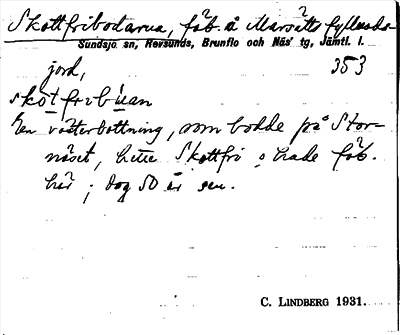 Skottfribodarna, fäb. å Marsätts fyllnads-
Sundsjö sn, Revsunds, Brunflo och Näs' tg, Jämtl. l.
jord,
353
skɷtfribúan
En västerbottning, som bodde på Stor-
näset, hette Skottfri o hade fäb.
här; dog 50 år sen.
C. LINDBERG 1931.